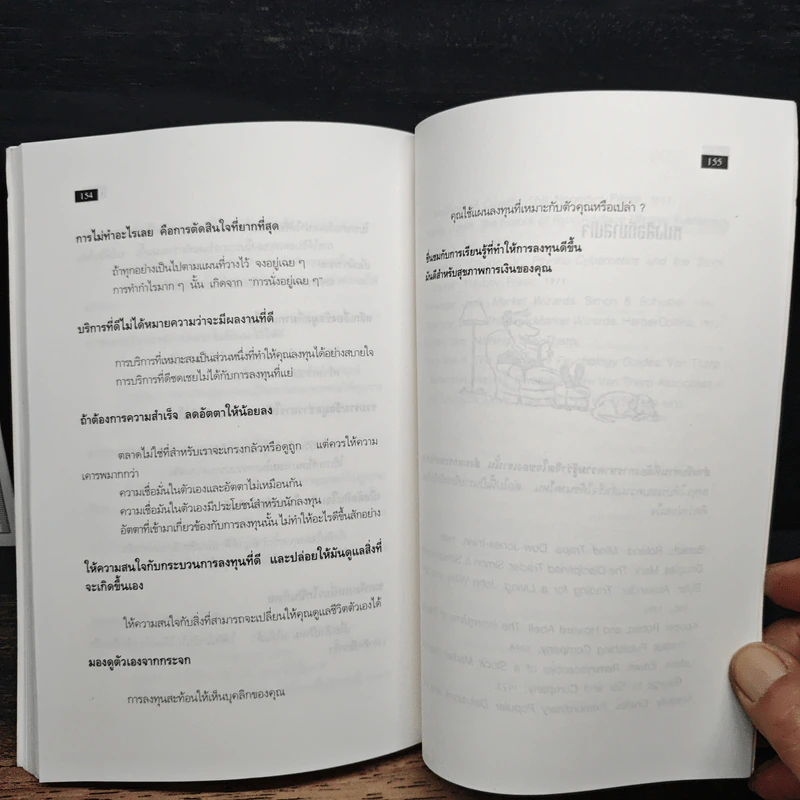 154
การไม่ทำอะไรเลย คือการตัดสินใจที่ยากที่สุด
ถ้าทุกอย่างเป็นไปตามแผนที่วางไว้ จงอยู่เฉย ๆ
การทำกำไรมาก ๆ นั้น เกิดจาก "การนั่งอยู่เฉย ๆ"
บริการที่ดีไม่ได้หมายความว่าจะมีผลงานที่ดี
การบริการที่เหมาะสมเป็นส่วนหนึ่งที่ทำให้คุณลงทุนได้อย่างสบายใจ
การบริการที่ดีชดเชยไม่ได้กับการลงทุนที่แย่
ถ้าต้องการความสำเร็จ ลดอัตตาให้น้อยลง
ตลาดไม่ใช่ที่สำหรับเราจะเกรงกลัวหรือดูถูก แต่ควรให้ความ
เคารพมากกว่า
ความเชื่อมั่นในตัวเองและอัตตาไม่เหมือนกัน
ความเชื่อมั่นในตัวเองมีประโยชน์สำหรับนักลงทุน
อัตตาที่เข้ามาเกี่ยวข้องกับการลงทุนนั้น ไม่ทำให้อะไรดีขึ้นสักอย่าง
ให้ความสนใจกับกระบวนการลงทุนที่ดี และปล่อยให้มันดูแลสิ่งที่
จะเกิดขึ้นเอง
ให้ความสนใจกับสิ่งที่สามารถจะเปลี่ยนให้คุณดูแลชีวิตตัวเองได้
มองดูตัวเองจากกระจก
การลงทุนสะท้อนให้เห็นบุคลิกของคุณ
155
คุณใช้แผนลงทุนที่เหมาะกับตัวคุณหรือเปล่า ?
ชื่นชมกับการเรียนรู้ที่ทำให้การลงทุนดีขึ้น
มันดีสำหรับสุขภาพการเงินของคุณ